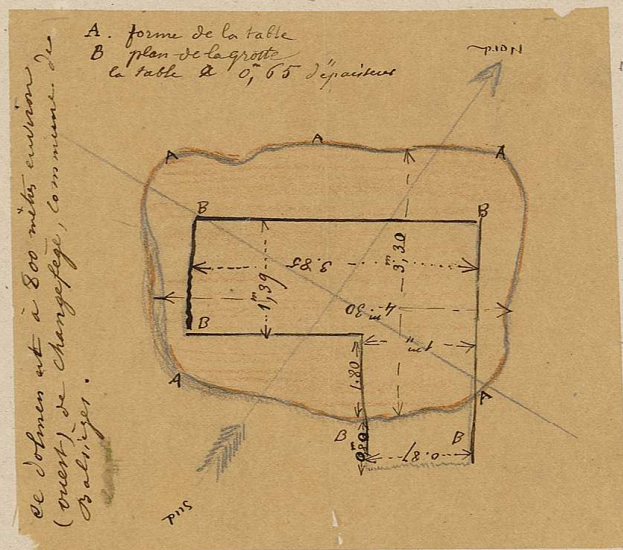 A. forme de la table
B plan de la grotte
la table a 0,m65 d'épaisseur
Nord
A
A
A
B
B
3.85
1,m39
3,m30
4m.30
B
1m,,
1.80
A
A
B
0m80
B
0.87
Sud
ce dolmen est à 800 mètres environ
(ouest) de Changefège, commune de
Balsièges.